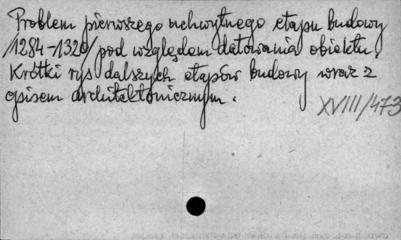 Problem pierwszego uchwytnego etapu budowy
/1284-1320/ pod względem datowania obiektu.
Krótki rys dalszych etapów budowy wraz z
opisem architektonicznym.
XVIII/473